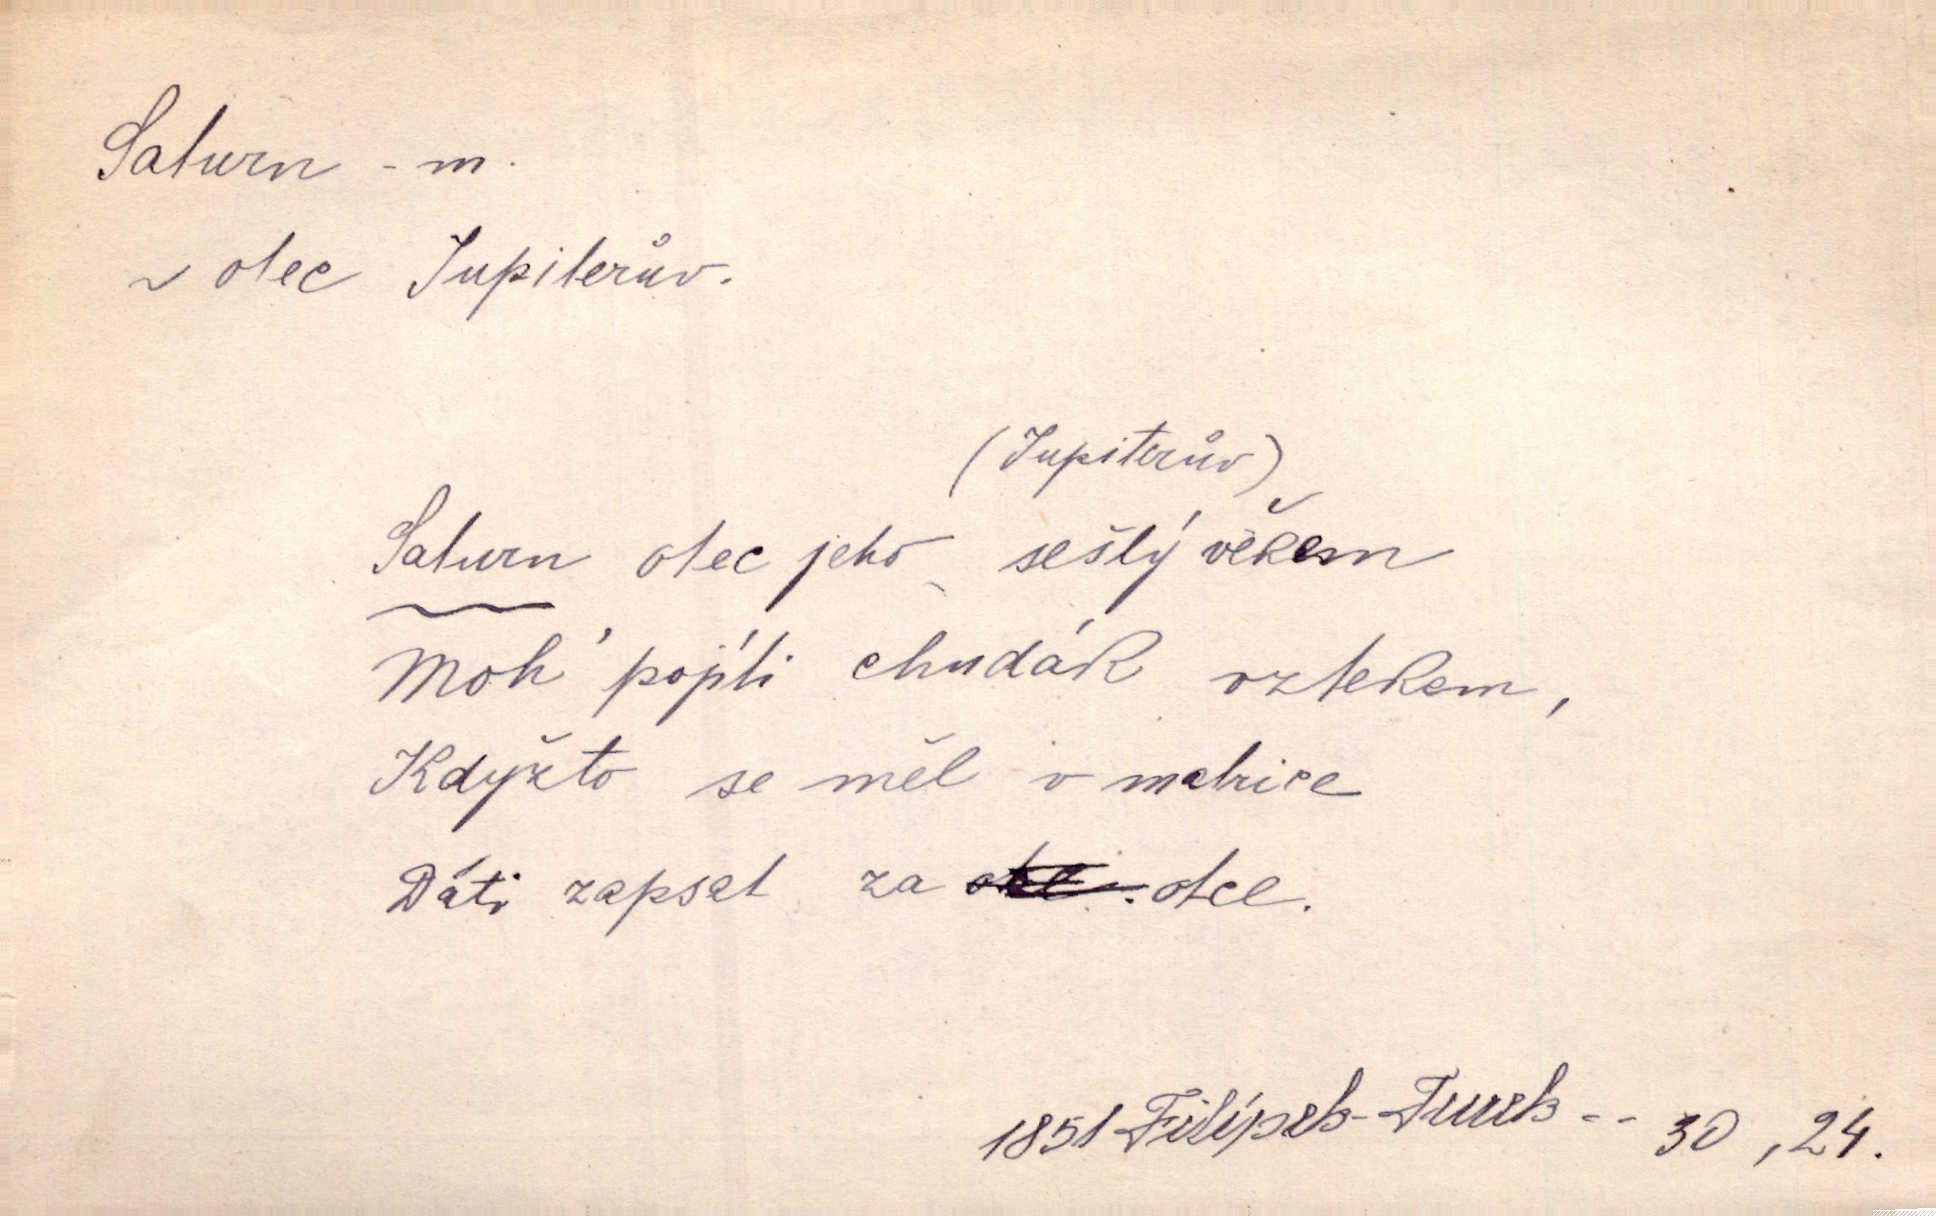 Saturn - m.
~ otec Jupiterův.
(Jupiterův)
Saturn otec jeho sešlý věkem
Moh' pojíti chudák vztekem,
Kdyžto se měl v matrice
Dáti zapsat za otce.
1851 Filípek - Turek -- 30, 24.